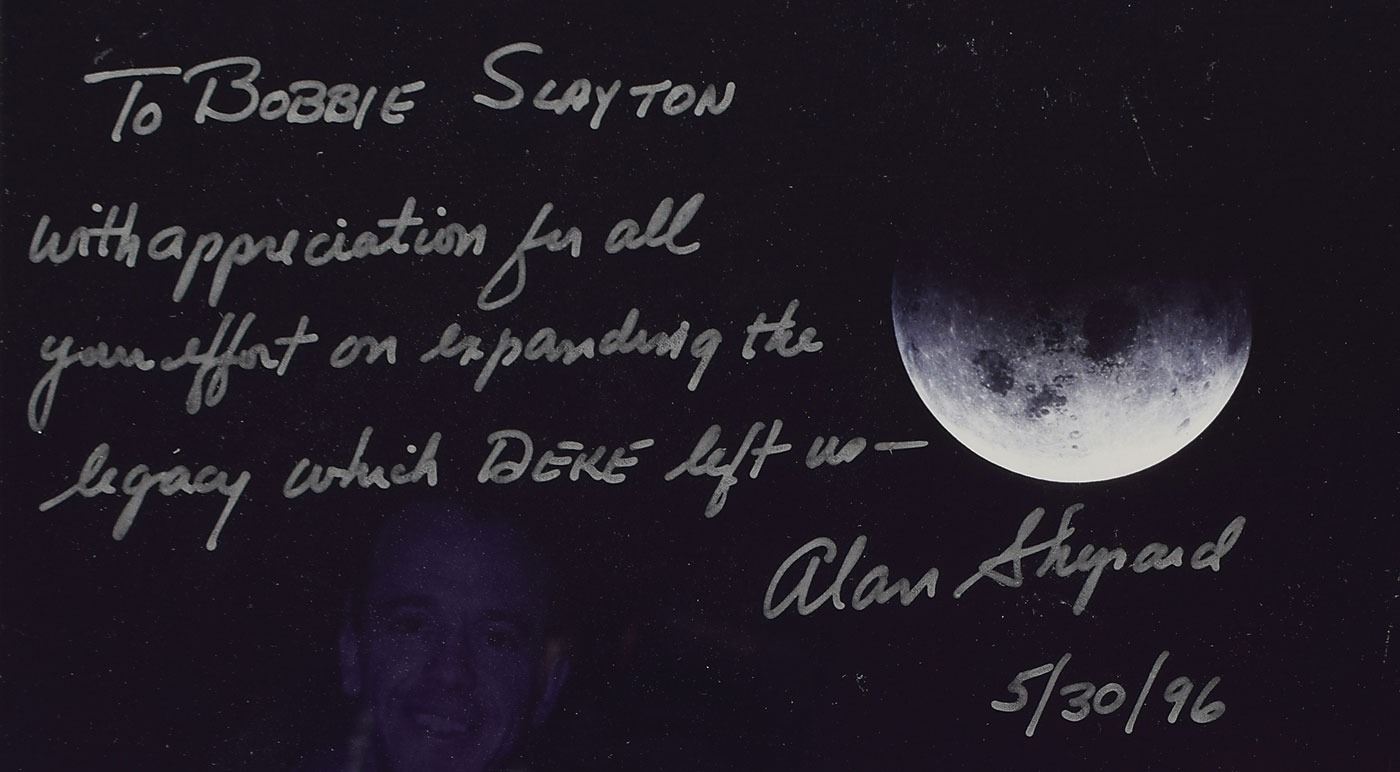 To BOBBIE SLAYTON
with appreciation for all
your effort on expanding the
legacy which DEKE left us—
Alan Shepard
5/30/96